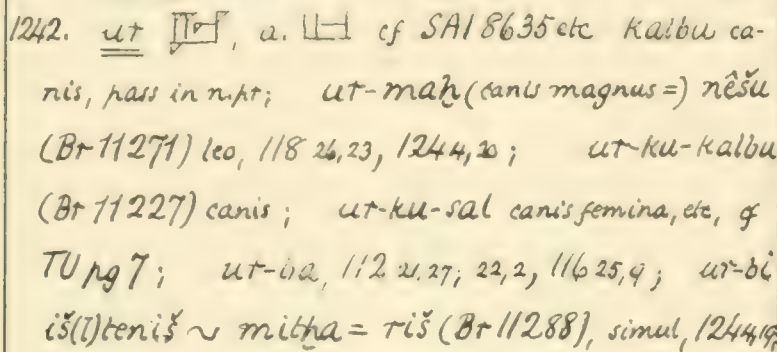 1242. ur , a. cf SAI 8635 etc kalbu ca-
nis, pass in n.pr; ur-maḫ (canis magnus =) nêšu
(Br 11271) leo, 118 26,23, 124 4,20; ur-ku-kalbu
(Br 11227) canis; ur-ku-sal canis femina, etc, cf
TU pg 7; 112 21,27; 22,2, 116 25,9; ur-bi
iš(l)teniš ~ mitḫa = riš (Br 11288), simul, 124 4,19,